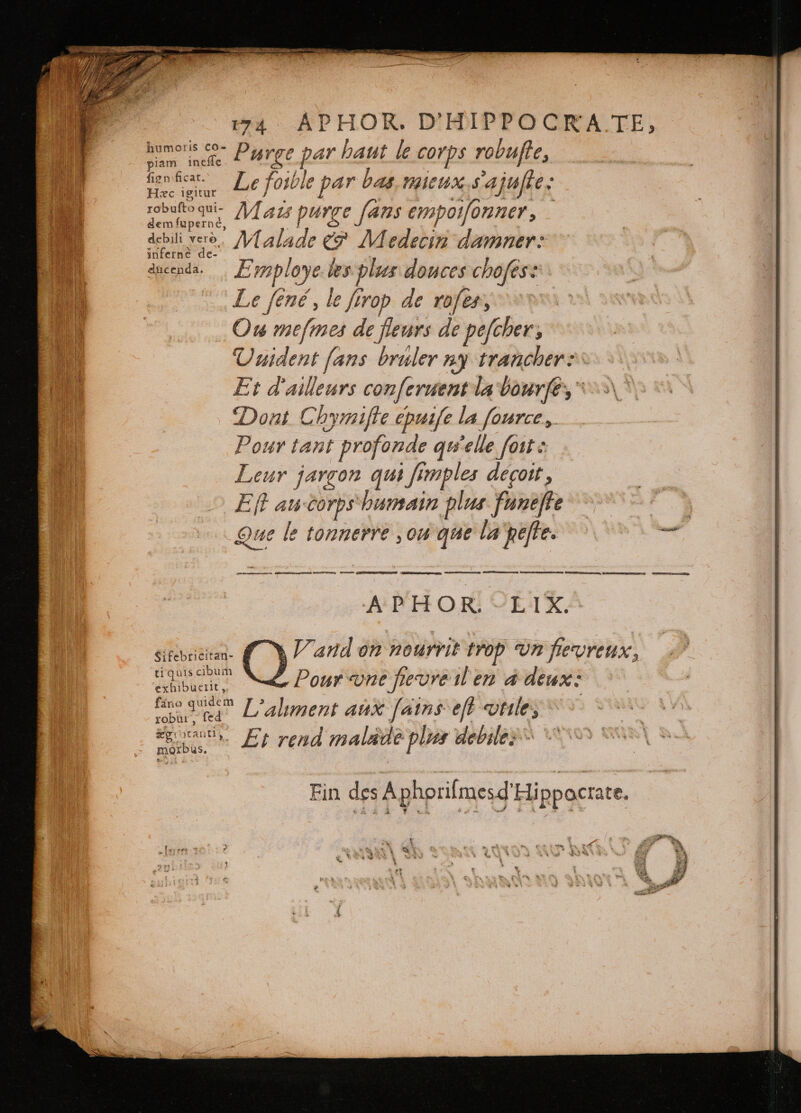 174 APHOR. D'HIPPOCRATE,
humoris co-
piam inesse
significat.
Hæc igitur
robusto qui-
dem supernè,
debili verò,
infernè de-
ducenda.
Purge par haut le corps robuſte,
Le foible par bas mieux s'ajuſte:
Mais purge ſans empoiſonner,
Malade & Medecin damner:
Employe les plus douces choſes:
Le ſené, le ſirop de roſes,
Ou meſmes de fleurs de peſcher,
Uuident ſans brûler ny trancher:
Et d'ailleurs conſeruent la bourſe,
Dont Chymiſte épuiſe la ſource,
Pour tant profonde qu'elle ſoit:
Leur jargon qui ſimples deçoit,
Eſt au corps humain plus funeſte
Que le tonnerre, ou que la peſte.
APHOR. LIX.
Si febricitan-
ti quis cibum
exhibuerit,
ſano quidem
robur, ſed
ægrotanti,
morbus.
QVand on nourrit trop vn fievreux,
Pour vne fievre il en a deux:
L'aliment aux ſains eſt vtile,
Et rend malade plus debile.
Fin des Aphoriſmes d'Hippocrate.